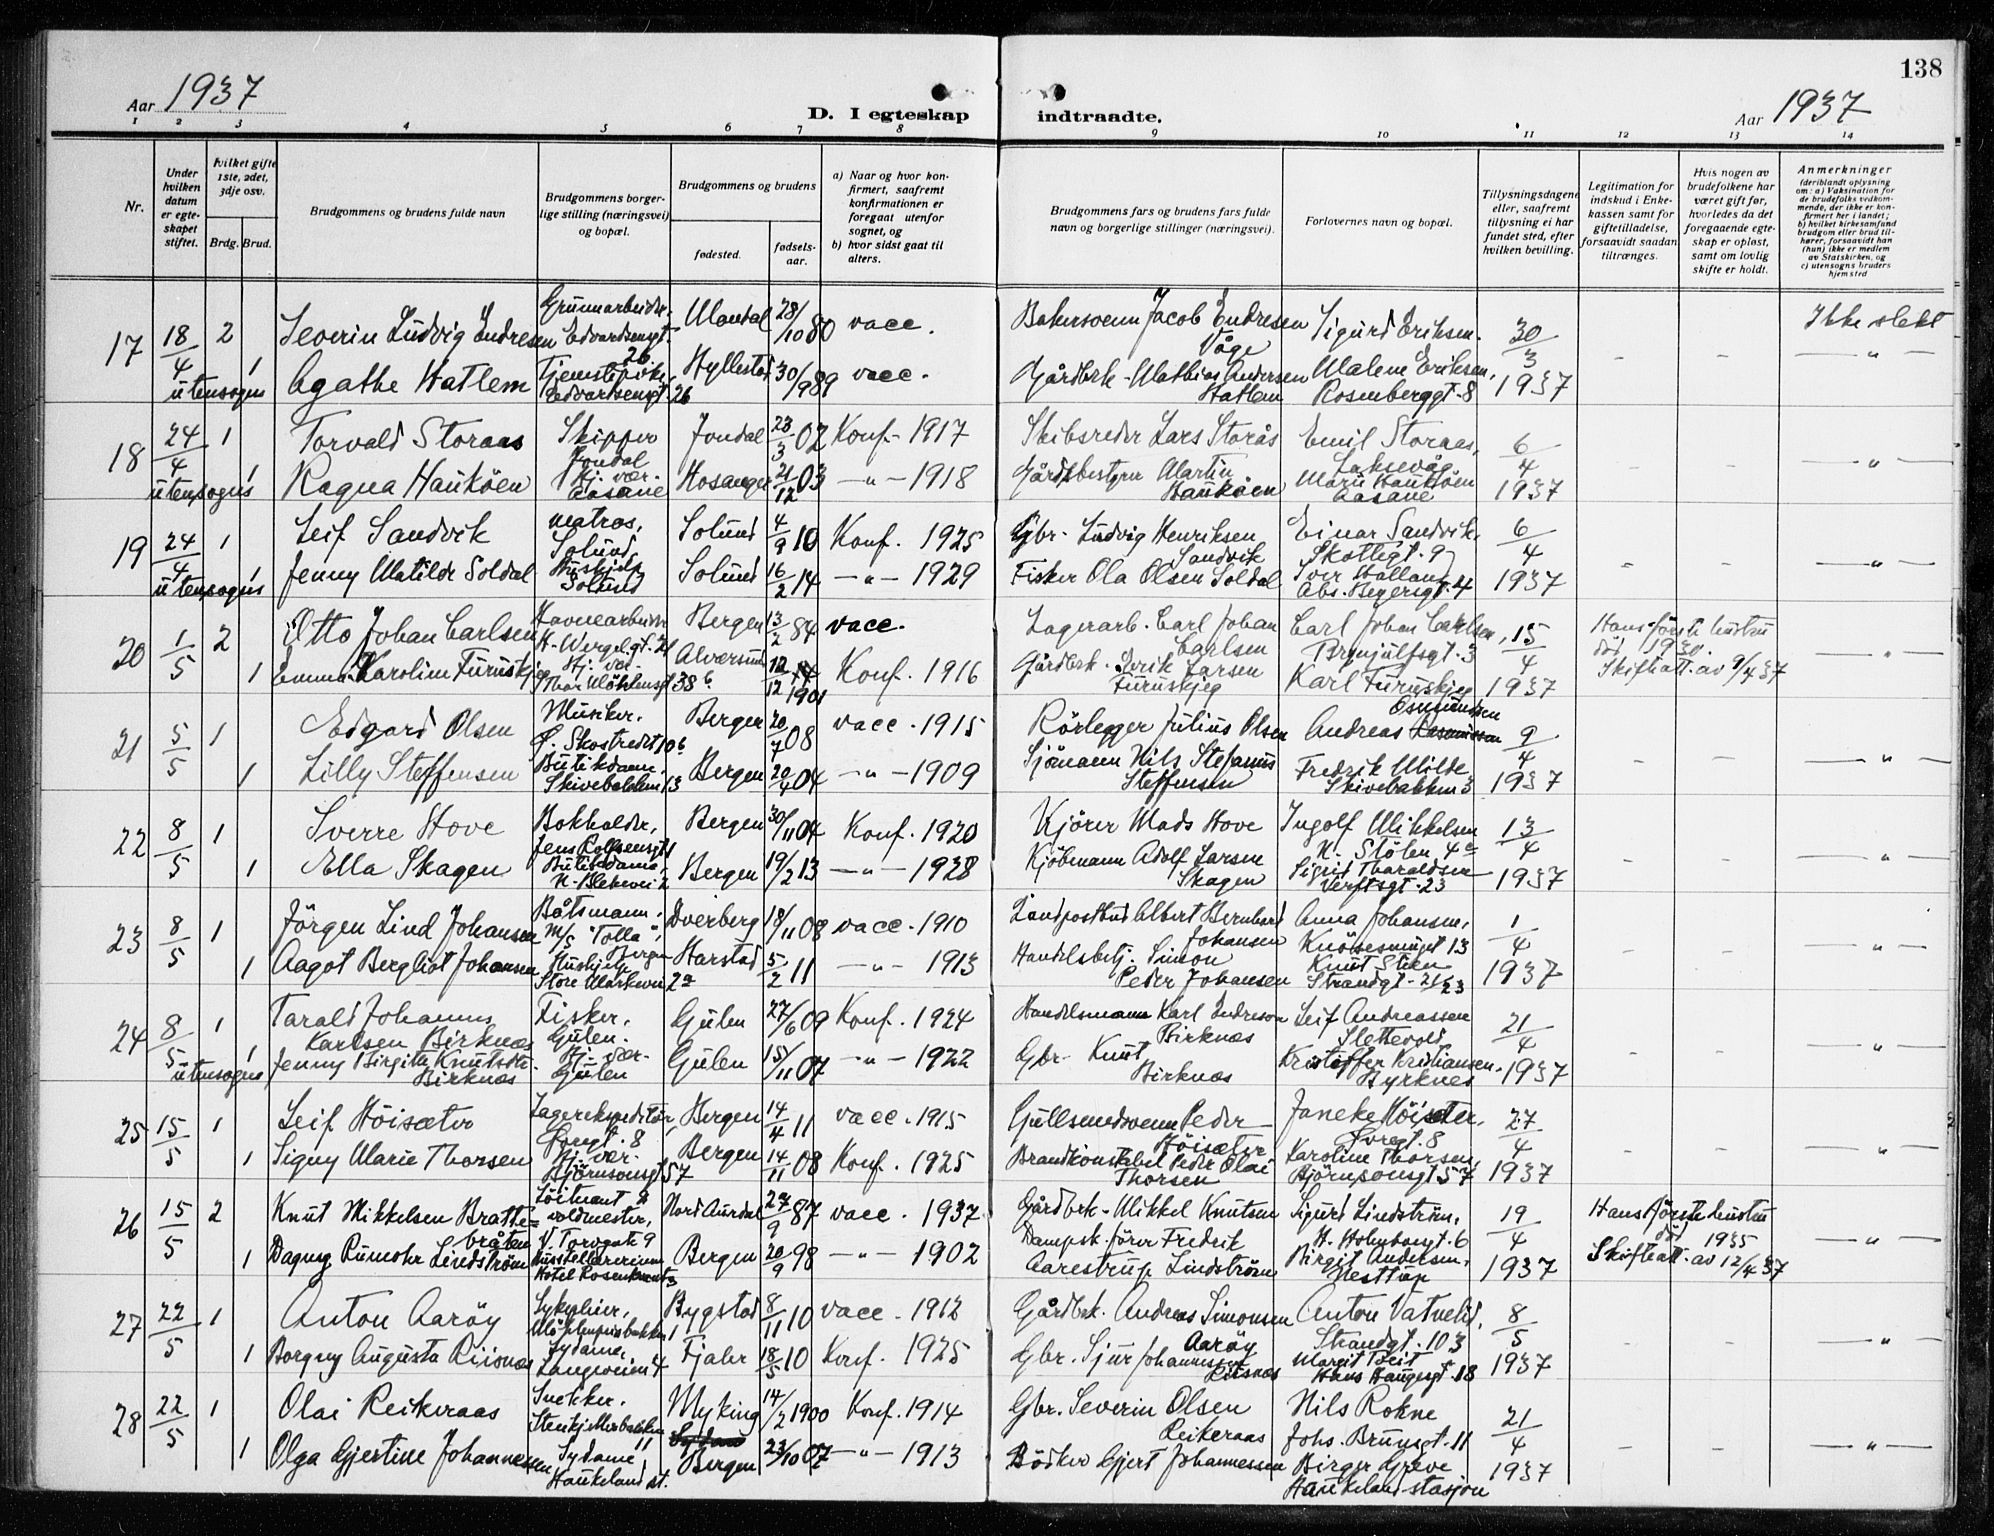 138
Aar 1937
D. I egteskap indtraadte.
Aar 1937
1 2 3 4 5 6 7 8 9 10 11 12 13 14
Nr.
Under hvilken datum er egteskapet stiftet.
Hvilket gifte 1ste, 2det, 3dje osv.
Brdg. Brud.
Brudgommens og brudens fulde navn
Brudgommens borgerlige stilling (næringsvei) og bopæl.
Brudgommens og brudens
fødested.
fødselsaar.
a) Naar og hvor konfirmert, saafremt konfirmationen er foregaat utenfor sognet, og
b) hvor sidst gaat til alters.
Brudgommens fars og brudens fars fulde navn og borgerlige stillinger (næringsvei).
Forlovernes navn og bopæl.
Tillysningsdagene eller, saafremt tillysning ei har fundet sted, efter hvilken bevilling.
Legitimation for indskud i Enkekassen samt for giftetilladelse, forsaavidt saadan tiltrænges.
Hvis nogen av brudefolkene har været gift før, hvorledes da det foregaaende egteskap er opløst, samt om lovlig skifte er holdt.
Anmerkninger
(deriblandt oplysning om: a) Vaksination for de brudefolks vedkommende, der ikke er konfirmert her i landet; b) hvilket kirkesamfund brudgom eller brud tilhører, forsaavidt han (hun) ikke er medlem av Statskirken, og c) utensogns bruders hjemsted
17 18/4 2 Severin Ludvig Endresen Grunnarbeider, Edvardsensgt. 26 Mandal 28/10 80 vacc. Bakersvenn Jacob Endresen Våge Sigurd Eriksen. 30/3 1937 Ikke slekt
utensogns 1 Agathe Hatlem Edvardsensgt. 26 Hyllestad 30/9 89 vacc. Gårdbrk. Mathias Andersen Hatlem Malene Eriksen, Rosenberggt. 8 - - - " -
18 24/4 1 Torvald Storaas Skipper Jondal Jondal 23/3 02 Konf. 1917 Skibsreder Lars Storås Emil Storaas, Laksevåg 6/4 1937
utensogns 1 Ragna Hauköen Hj. vær. Aasane Hosanger 21/12 03 - " - 1918 Gårdsbestyrer Martin Haukøen Marie Haukøen Aasane - - - " -
19 24/4 1 Leif Sandvik matros, Solund Solund 4/9 10 Konf. 1925 Gbr. Ludvig Henriksen Sandvik Einar Sandvik, Skottegt. 9 6/4 1937
utensogns 1 Jenny Matilde Soldal Solund Solund 16/2 14 - " - 1929 Fisker Ola Olsen Soldal Iver Abs. Beyersgt. 4 - - - " -
20 1/5 2 Otto Johan Carlsen Havnearbeider H. Wergel.gt. 21 Bergen 13/2 84 vacc. Lagerarb. Carl Johan Carlsen Carl Johan Carlsen, Brynjulfsgt. 3 15/4 1937 Hans første hustru död 1930. Skifteatt. av 9/4 37
1 Emma Karoline Furuskjeg Hj. vær. Thor Möhlensgt 38b Alversund 12/12 1901 Konf. 1916 Gårdbrk. Lerik Larsen Furuskjeg Karl Furuskjeg - " -
21 5/5 1 Edgard Olsen Musiker. Ø. Skostredet 10b Bergen 20/7 08 vacc. 1915 Rörlegger Julius Olsen Andreas Osmundsen 9/4 1937
1 Lilly Steffensen Butikdame, Skivebakken 13 Bergen 20/4 04 - " - 1909 Sjömann Nils Stefanus Steffensen Fredrik Milde Skivebakken 3 - - - " -
22 8/5 1 Sverre Hove Bokholder, Jens Rolfsensgt 1 Bergen 30/11 04 Konf. 1920 Kjörer Mads Hove Ingolf Mikkelsen N. Stølen 4a 13/4 1937
1 Ella Skagen Butikkdame, N. Blekevei 2 Bergen 19/2 13 - " - 1928 Kjöbmann Adolf Larsen Skagen Sigrid Tharaldsen Verftsgt. 23 - - - " -
23 8/5 1 Jörgen Lind Johansen Båtsmann, M/S "Tolla", Bergen Dverberg 18/11 08 vacc. 1910 Landpostbud Albert Bernhard Johansen Anna Johansen, Knösesmuget 13 1/4 1937
1 Aagot Bergliot Johansen Hushjelp Store Markevei 2a Harstad 5/2 11 - " - 1913 Handelsbetj. Simon Peder Johansen Knut Stien Strandgt. 21/23 - - - " -
24 8/5 1 Tarald Johannes Karlsen Birknes Fisker, Gulen. Gulen 27/6 09 Konf. 1924 Handelsmann Karl Indreson Birknæs Leif Andreassen Slettevold 21/4 1937
utensogns 1 Jenny Birgitte Knutsdtr. Birknæs Hj. vær. Gulen Gulen 15/11 07 - " - 1922 Gbr. Knut Birknæs Kristoffer Kristiansen, Byrknes - - - " -
25 15/5 1 Leif Höisæter Lagerekspeditör, Øvregt. 8 Bergen 14/4 11 vacc. 1915 Gullsmedsvenn Peder Höisæter Janeke Höisæter, Øvregt. 8 27/4 1937
1 Signy Marie Thorsen Hj. vær. Björnsonsgt 57 Bergen 14/11 08 Konf. 1925 Brandkonstabel Peder Olai Thorsen Karoline Thorsen, Björnsonsgt 57 - - - " -
26 15/5 2 Knut Mikkelsen Brattebråten Löitnant & voldmester, V. Torvgate 9 Nord Aurdal 27/9 87 vacc. 1937. Gårdbrk. Mikkel Knutsen Sigurd Lindström, H. Holmboesgt. 6 19/4 1937 Hans første hustru död 1935 Skifteatt. av 12/4 37
1 Dagny Rumohr Lindström Hotel Rosenkrantz Bergen 20/9 98 - " - 1902 Dampsk. förer Fredrik Aarestrup Lindström Birgit Andersen, Nesttun - " -
27 22/5 1 Anton Aaröy Sykepleier, Möhlenprisbakken 1 Bygstad 8/11 10 vacc. 1912 Gårdbrk. Andreas Simonsen Aaröy Anton Vatnelid, Strandgt. 103 8/5 1937
1 Borgny Augusta Riisnæs Sydame, Langeveien 4 Fjaler 18/5 10 Konf. 1925 Gbr. Sjur Johannessen Risnæs Margit Tveit Hans Haugesgt. 18 - - - " -
28 22/5 1 Olai Reikeraas Snekker. Stenkjellerbakken 11 Myking 14/2 1900 Konf. 1914 Gbr. Severin Olsen Reikeraas Nils Rokne Johs. Brunsgt. 11 21/4 1937
1 Olga Gjertine Johannessen Sydame Haukeland st. Bergen 23/10 07 - " - 1913 Bödker Gjert Johannessen Birger Greve Haukeland stasjon - - - " -